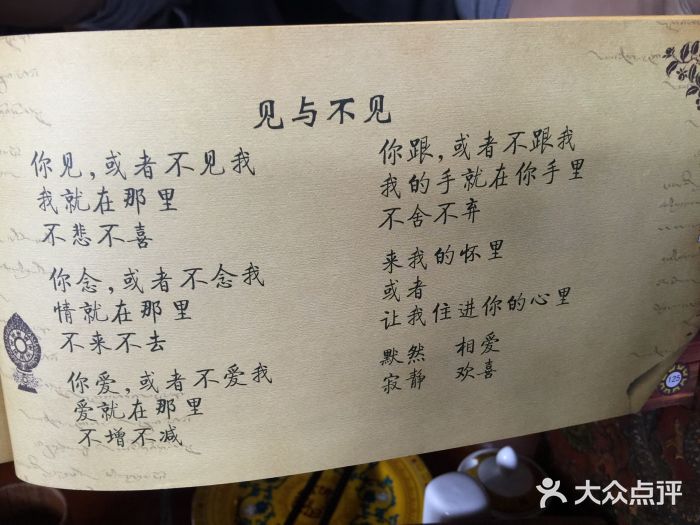 见与不见
你见,或者不见我
我就在那里
不悲不喜
你念,或者不念我
情就在那里
不来不去
你爱,或者不爱我
爱就在那里
不增不减
你跟,或者不跟我
我的手就在你手里
不舍不弃
来我的怀里
或者
让我住进你的心里
默然 相爱
寂静 欢喜
125
大众点评